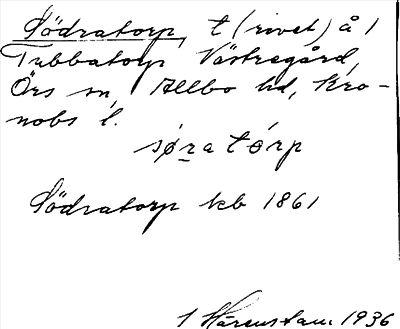 Södratorp, t (rivet) å 1
Tubbatorp Västregård,
Örs sn, Allbo hd, Kro-
nobs l.
sø̀ratórp
Södratorp kb 1861
1936